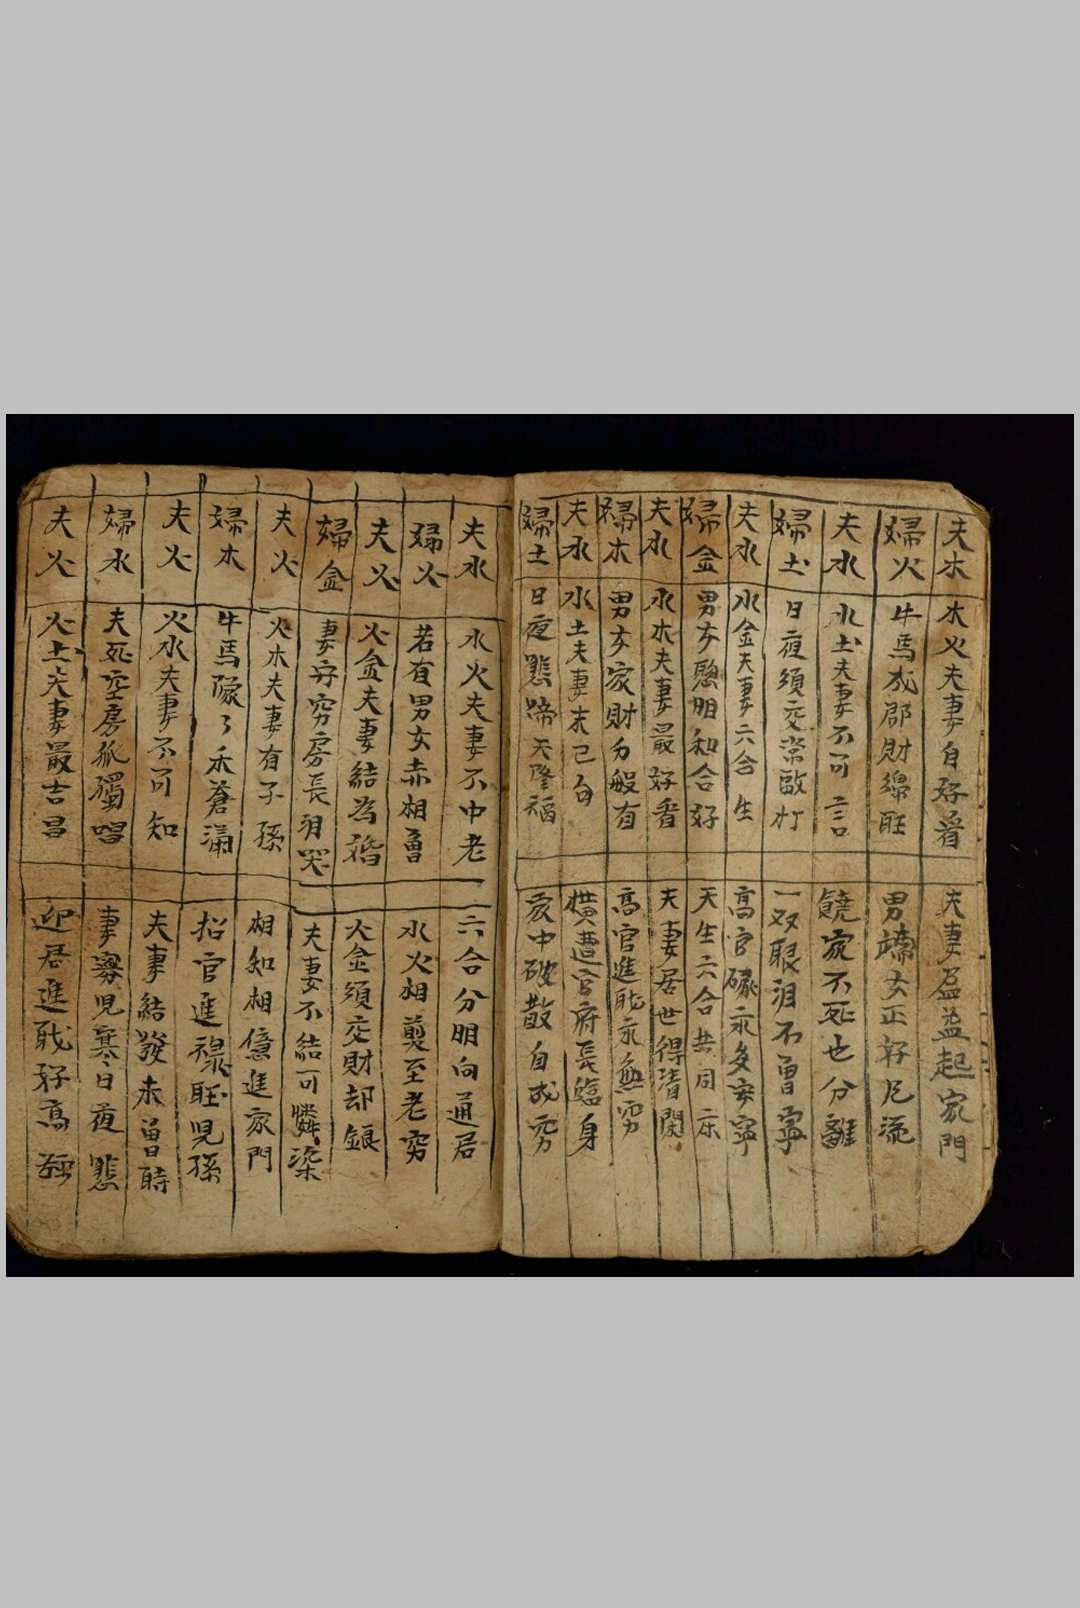 夫木 木火夫妻自好看 夫妻盈益起家門
婦火 牛馬成郡財綿旺 男啼女正好風流
夫水 水土夫妻不可言 饒家不死也分離
婦土 日夜須交常毆打 一双眼泪不曽寧
夫水 水金夫妻六合生 高官祿永多安寧
婦金 男女聰明和合好 天生六合共同床
夫水 水木夫妻最好看 夫妻居世得清閑
婦木 男女家財分般有 高官進职永無窮
夫水 水土夫妻 横遭官府長臨身
婦土 日夜悲啼天降福 家中破散自成穷
夫水 水火夫妻不中老 六合分明向通居
婦火 若有男女赤相魯 水火相剪至老穷
夫火 火金夫妻結为 火金須交財却銀
婦金 妻守穷房長泪哭 夫妻不結可憐
夫火 火木夫妻有子孫 相知相億進家門
婦木 牛馬隊了禾蒼满 招官進祿旺兒孫
夫火 火水夫妻不可知 夫事結發未曽時
婦水 夫死空房孤獨唱 事寡児寒日夜悲
夫火 火土夫妻最吉昌 迎居進职好高強